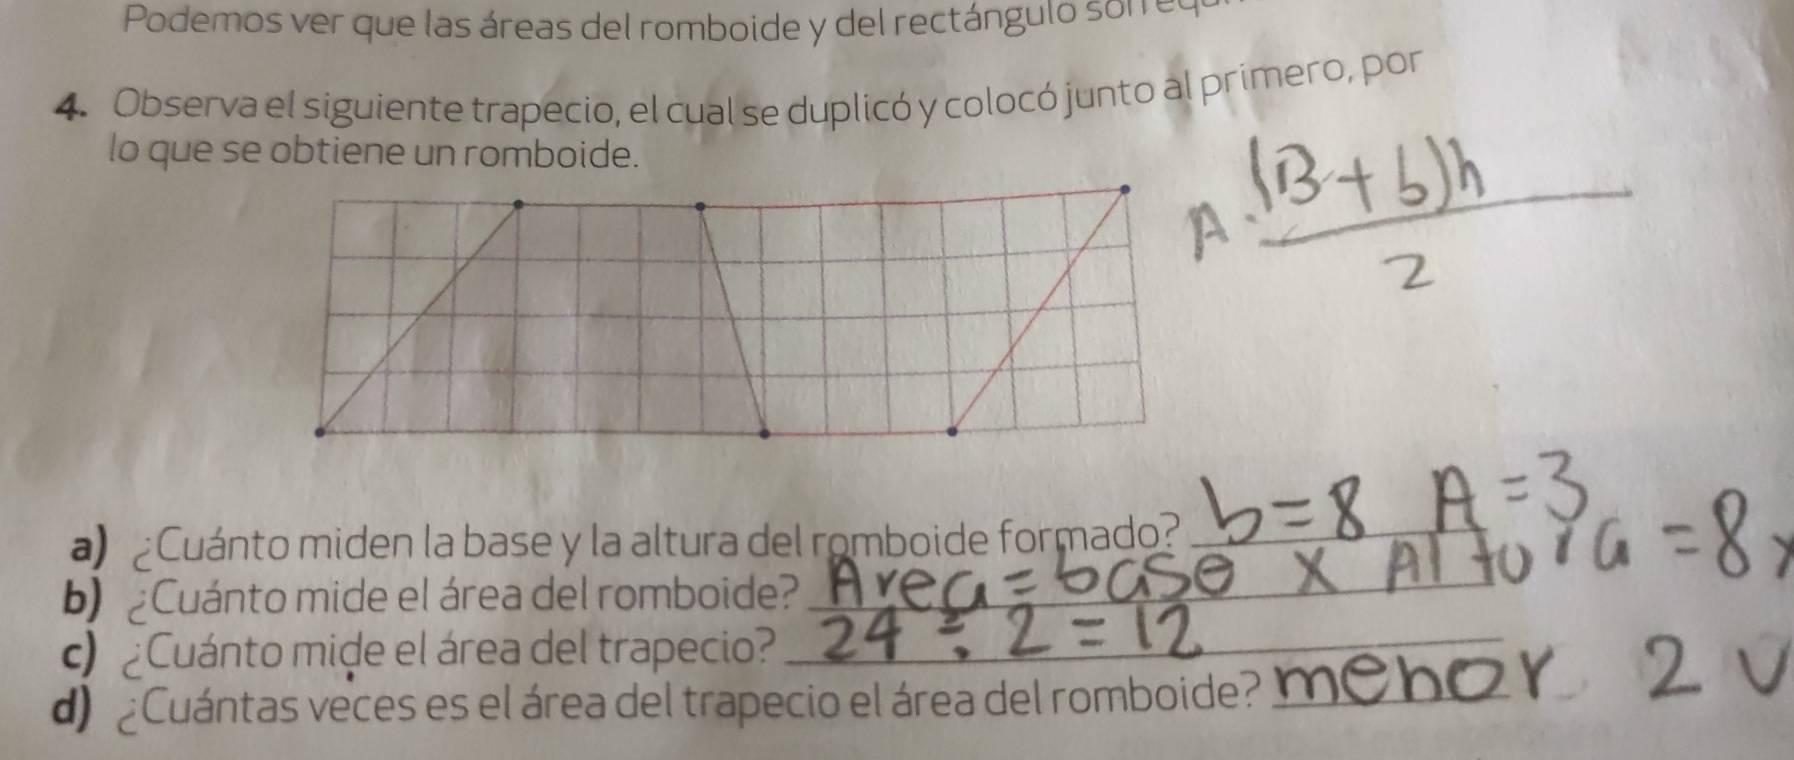 Podemos ver que las áreas del romboide y del rectángulo son
4. Observa el siguiente trapecio, el cual se duplicó y colocó junto al primero, por
lo que se obtiene un romboide.
A. (B+b)h
2
a) ¿Cuánto miden la base y la altura del romboide formado? b=8 A=3
b) ¿Cuánto mide el área del romboide? Area=base x Altura=8x
c) ¿Cuánto mide el área del trapecio? 24÷2=12
d) ¿Cuántas veces es el área del trapecio el área del romboide? menor 2 v